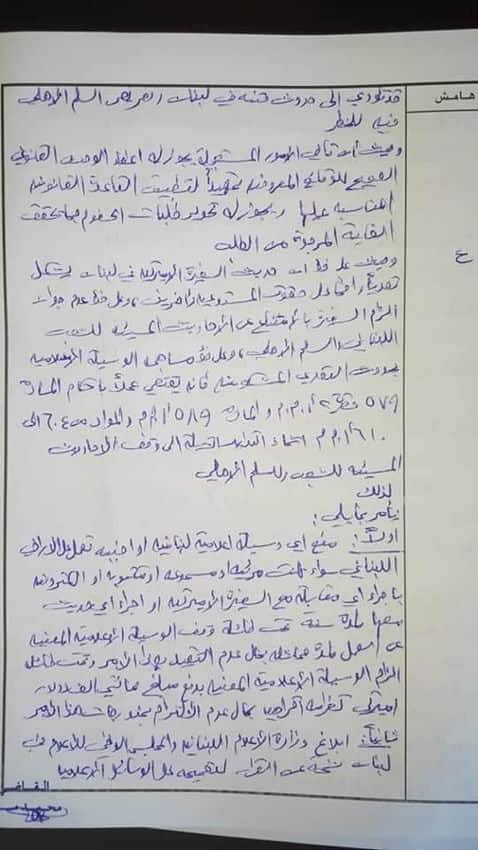 هامش
قد تؤدي الى حدوث فتنة في لبنان وتعريض السلم الاهلي
فيه للخطر
وحيث ان قاضي الامور المستعجلة يجوز له اعطاء الوصف القانوني
الصحيح للوقائع المعروضة تمهيداً لتطبيق القاعدة القانونية
المناسبة عليها ويجوز له تحوير طلبات الخصوم بما يحقق
الغاية المرجوة من الطلب
وحيث على ضوء ان حديث السفيرة الاميركية في لبنان يشكل
تعدياً واضحاً على حقوق المستدعية وآخرين، وعلى ضوء عدم جواز
الزام السفيرة بالامتناع عن الاحاديث المسيئة للشعب
اللبناني والسلم الاهلي، وعلى ضوء مساهمة الوسيلة الاعلامية
بحدوث التعدي المشكو منه فانه يقتضي عملاً باحكام المادة
٥٧٩ فقرة ٢ أ.م.م و المادة ٥٨٩ أ.م.م والمواد من ٦٠٤ الى
٦١٠ أ.م.م اتخاذ التدابير الآيلة الى وقف الاحاديث
المسيئة للشعب وللسلم الاهلي
لذلك
يأمر بما يلي:
اولاً: منع أي وسيلة اعلامية لبنانية او اجنبية تعمل على الاراضي
اللبنانية سواء كانت مرئية او مسموعة او مكتوبة او الكترونية
باجراء اي مقابلة مع السفيرة الاميركية او اجراء اي حديث
معها لمدة سنة تحت طائلة وقف الوسيلة الاعلامية المعنية
عن العمل لمدة مماثلة بحال عدم التقيد بهذا الامر وتحت طائلة
الزام الوسيلة الاعلامية المعنية بدفع مبلغ مائتي الف دولار
اميركي كغرامة اكراهية بحال عدم الالتزام بمندرجات هذا الامر
ثانياً: ابلاغ وزارة الاعلام اللبنانية والمجلس الوطني للاعلام في
لبنان نسخة عن القرار لتعميمه على الوسائل الاعلامية
القاضي